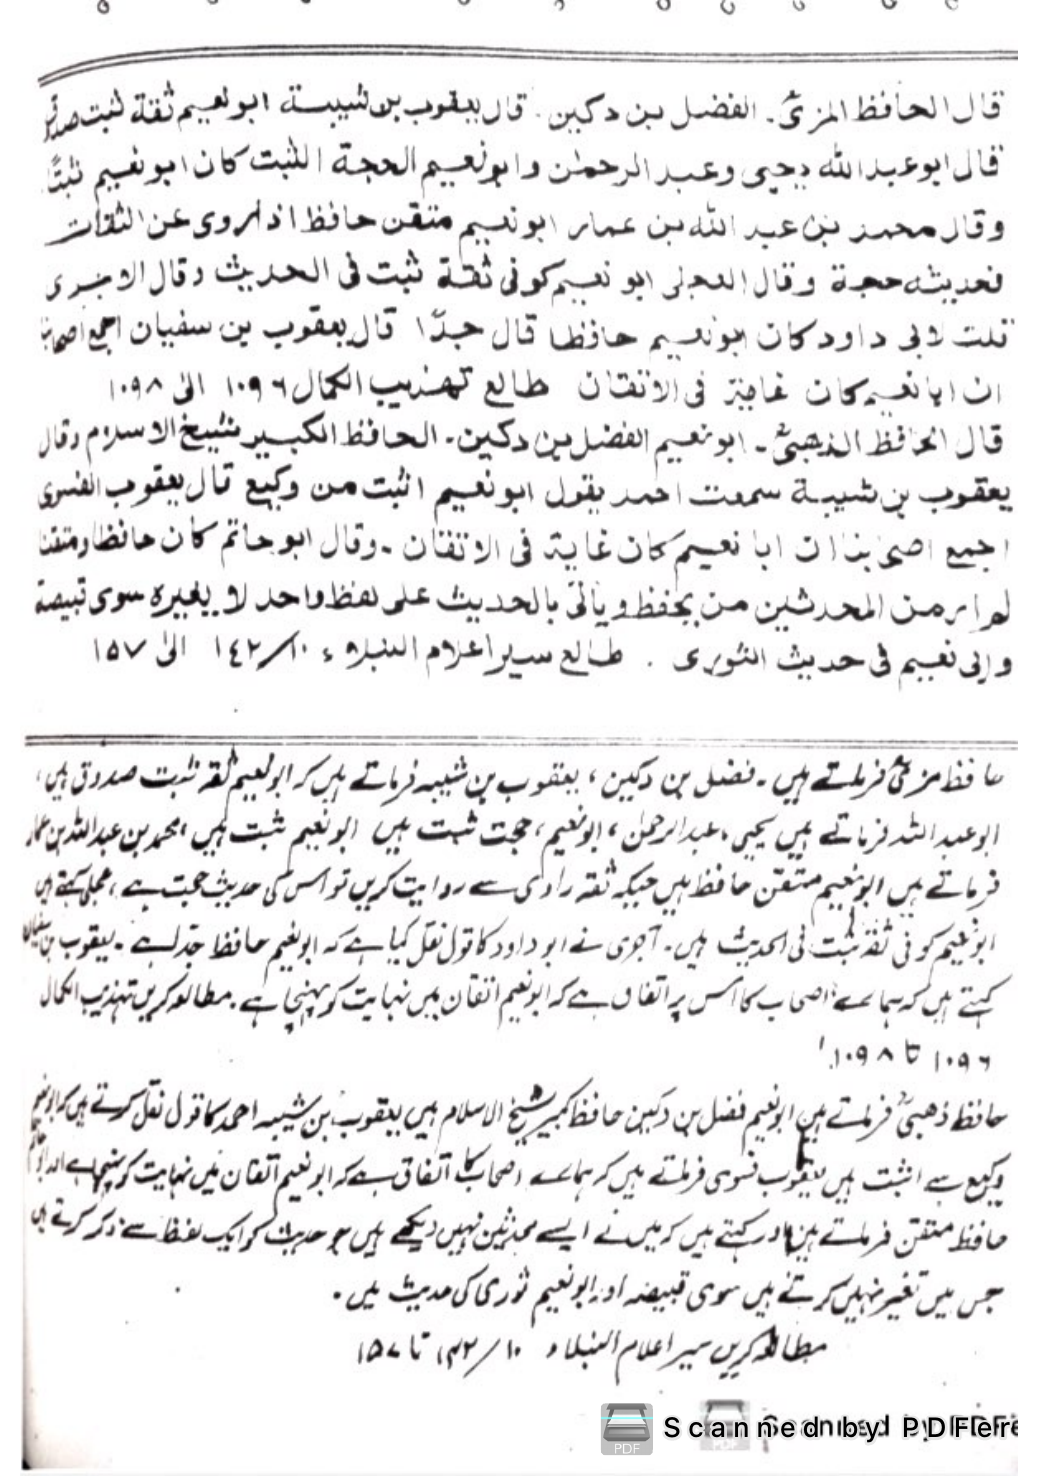 قال الحافظ المزیؒ۔ الفضل بن دکین۔ قال یعقوب بن شیبة ابو نعیم ثقة ثبت صدوق
قال ابو عبد الله یحیی وعبد الرحمٰن وابو نعیم الحجة الثبت کان ابو نعیم ثبتًا
وقال محمد بن عبد الله بن عمار ابو نعیم متقن حافظ اذا روی عن الثقات
فحدیثه حجة وقال العجلی ابو نعیم کوفی ثقة ثبت فی الحدیث وقال الاجری
قلت لابی داود کان ابو نعیم حافظا قال جدّا قال یعقوب بن سفیان اجمع اصحابنا
ان ابا نعیم کان غایة فی الاتقان طالع تهذیب الکمال ۱۰۹۶ الیٰ ۱۰۹۸
قال الحافظ الذهبیؒ۔ ابو نعیم الفضل بن دکین۔ الحافظ الکبیر شیخ الاسلام وقال
یعقوب بن شیبة سمعت احمد یقول ابو نعیم اثبت من وکیع قال یعقوب الفسوی
اجمع اصحابنا ان ابا نعیم کان غایة فی الاتقان۔ وقال ابو حاتم کان حافظا ومتقنا
لم ار من المحدثین من یحفظ ویأتی بالحدیث علی لفظ واحد لا یغیره سوی قبیصة
وابی نعیم فی حدیث الثوری ۔ طالع سیر اعلام النبلاء ۱۰/۱٤۲ الیٰ ۱۵۷
حافظ مزیؒ فرماتے ہیں۔ فضل بن دکین، یعقوب بن شیبہ فرماتے ہیں کہ ابو نعیم ثقہ ثبت صدوق ہیں،
ابو عبد اللہ فرماتے ہیں یحییٰ، عبد الرحمٰن، ابو نعیم، حجت ثبت ہیں ابو نعیم ثبت ہیں، محمد بن عبد اللہ بن عمار
فرماتے ہیں ابو نعیم متقن حافظ ہیں جبکہ ثقہ راوی سے روایت کریں تو اس کی حدیث حجت ہے، عجلی کہتے ہیں
ابو نعیم کوفی ثقہ ثبت فی الحدیث ہیں۔ آجری نے ابو داود کا قول نقل کیا ہے کہ ابو نعیم حافظ جدا ہے۔ یعقوب بن سفیان
کہتے ہیں کہ ہمارے اصحاب کا اس پر اتفاق ہے کہ ابو نعیم اتقان میں نہایت کو پہنچا ہے۔ مطالعہ کریں تہذیب الکمال
۱۰۹۶ تا ۱۰۹۸
حافظ ذھبیؒ فرماتے ہیں ابو نعیم فضل بن دکین حافظ کبیر شیخ الاسلام ہیں یعقوب بن شیبہ احمد کا قول نقل کرتے ہیں کہ ابو نعیم
وکیع سے اثبت ہیں یعقوب فسوی فرماتے ہیں کہ ہمارے اصحاب کا اتفاق ہے کہ ابو نعیم اتقان میں نہایت کو پہنچا ہے اور ابو حاتم
حافظ متقن فرماتے ہیں اور کہتے ہیں کہ میں نے ایسے محدثین نہیں دیکھے ہیں جو حدیث کو ایک لفظ سے ذکر کرتے ہیں
جس میں تغیر نہیں کرتے ہیں سوی قبیصہ اور ابو نعیم ثوری کی حدیث میں۔
مطالعہ کریں سیر اعلام النبلاء ۱۰/۱۴۲ تا ۱۵۷
Scanned by PDF